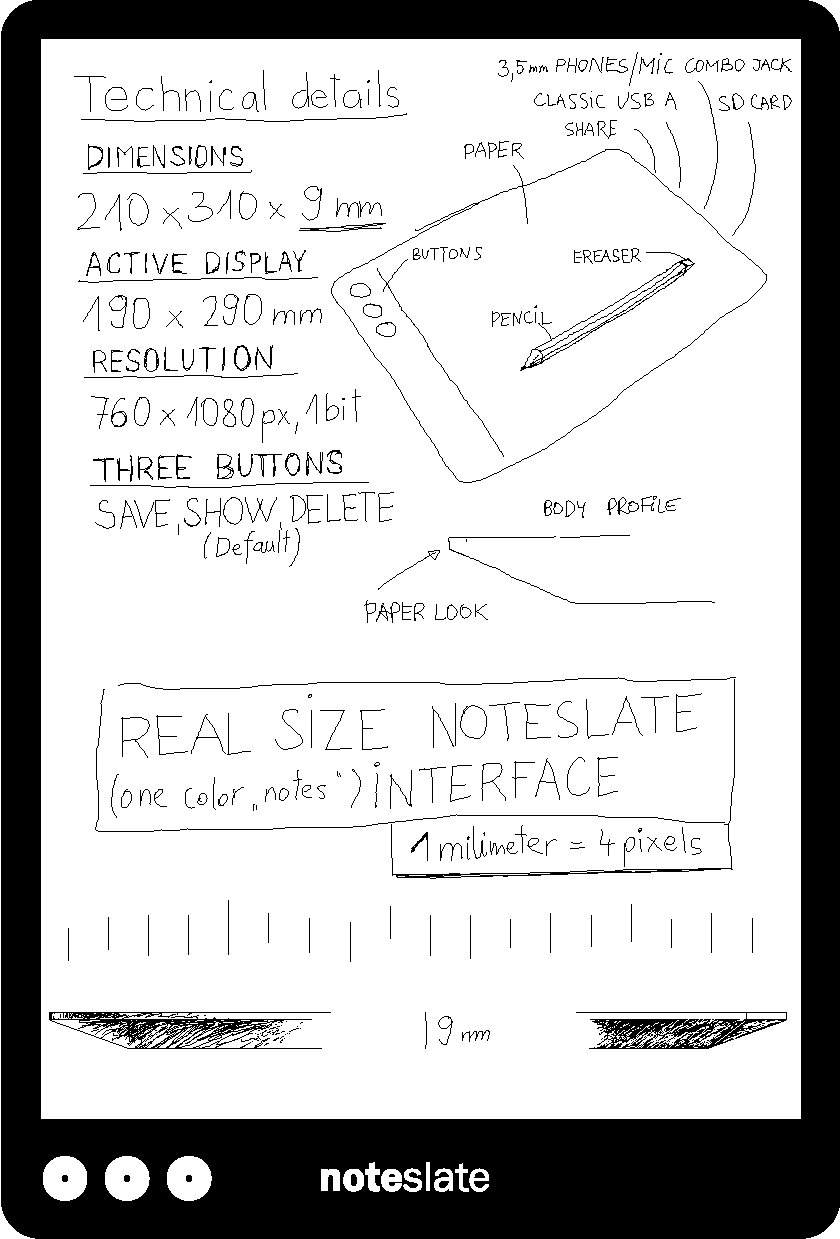 Technical details
DIMENSIONS
210 x 310 x 9 mm
ACTIVE DISPLAY
190 x 290 mm
RESOLUTION
760 x 1080 px, 1 bit
THREE BUTTONS
SAVE, SHOW, DELETE
(Default)
3,5mm PHONES/MiC COMBO JACK
CLASSiC USB A
SD CARD
SHARE
PAPER
BUTTONS
EREASER
PENCiL
BODY PROFiLE
PAPER LOOK
REAL SiZE NOTESLATE
(one color „notes“) iNTERFACE
1 milimeter = 4 pixels
9 mm
noteslate